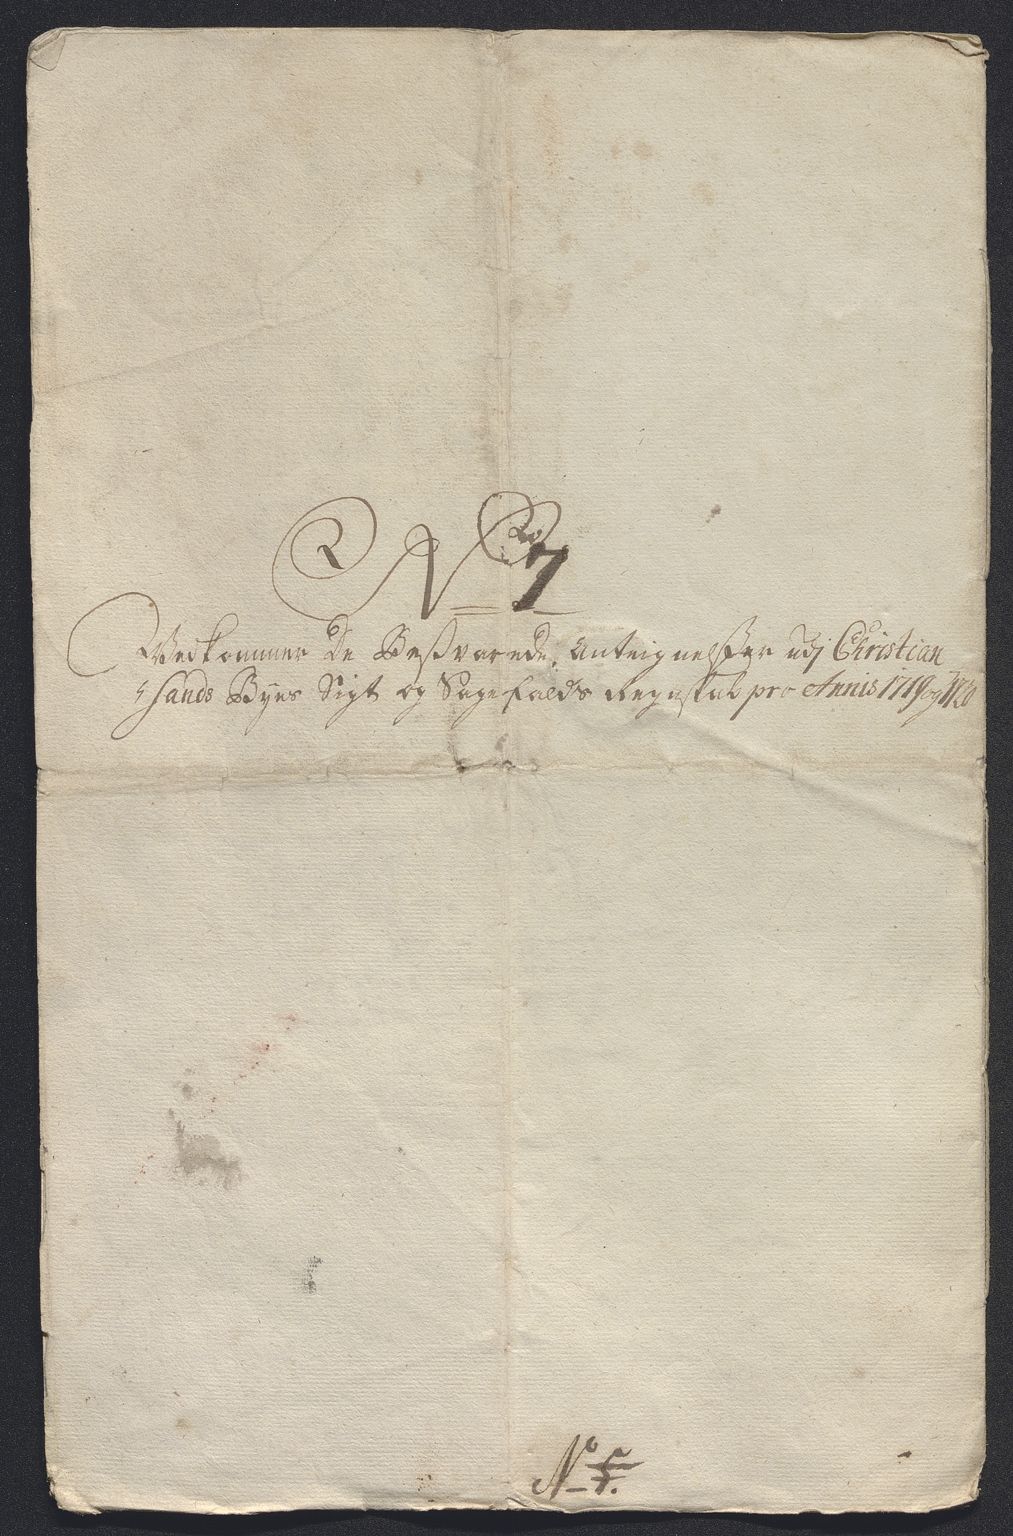 No 7
Vedkommer De Besvarede Anteignelser udj Christian
sands Byes Sigt og Sagefalds Regnskab pro Annis 1719 og 1720
No